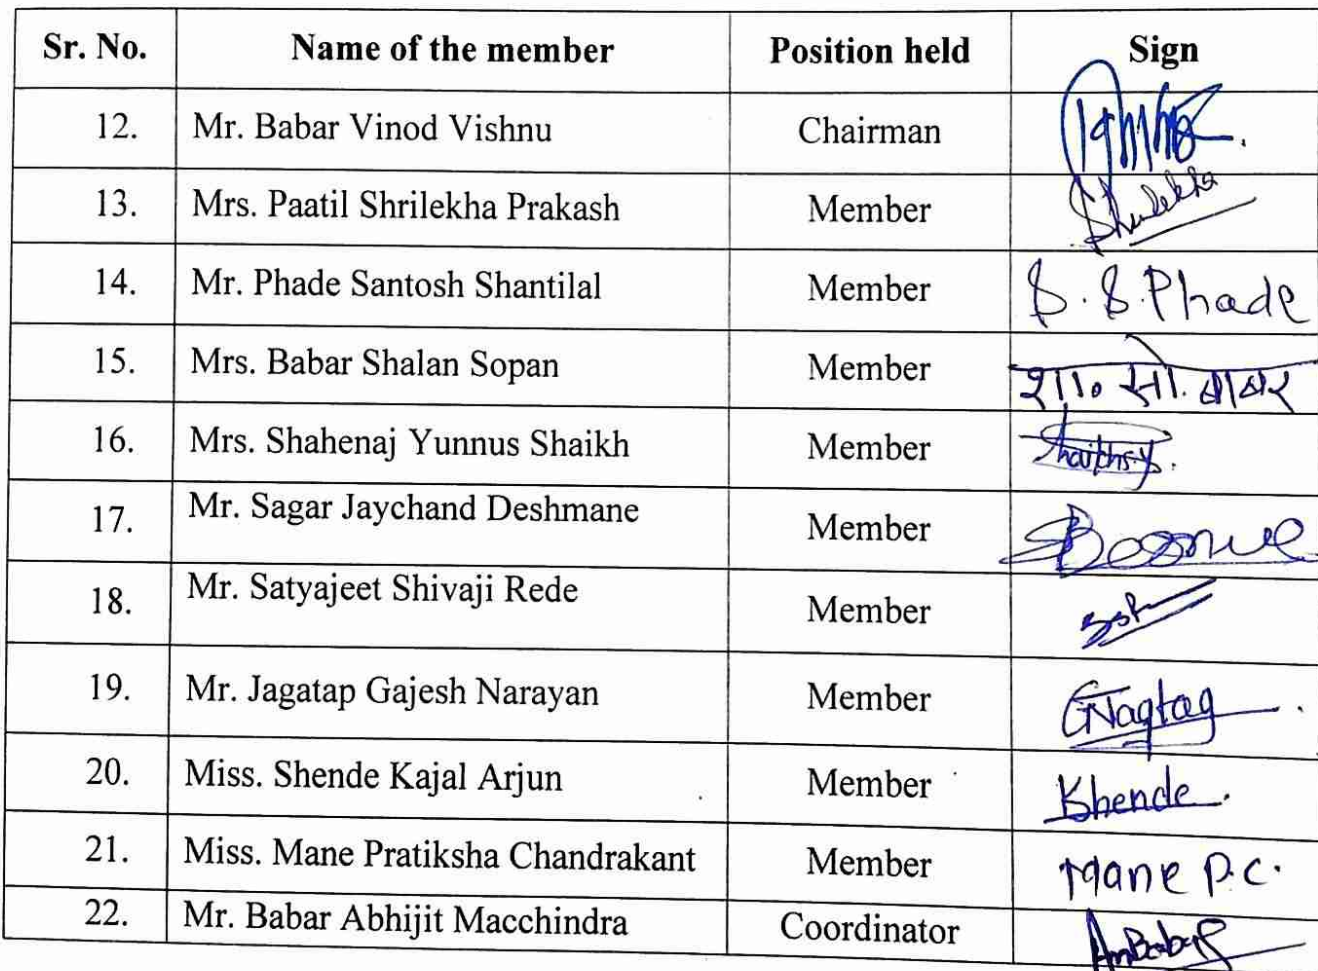 Sr. No. Name of the member Position held Sign
12. Mr. Babar Vinod Vishnu Chairman
13. Mrs. Paatil Shrilekha Prakash Member Shrilekha
14. Mr. Phade Santosh Shantilal Member S. S. Phade
15. Mrs. Babar Shalan Sopan Member शा० सो. बाबर
16. Mrs. Shahenaj Yunnus Shaikh Member
17. Mr. Sagar Jaychand Deshmane Member
18. Mr. Satyajeet Shivaji Rede Member
19. Mr. Jagatap Gajesh Narayan Member
20. Miss. Shende Kajal Arjun Member KShende.
21. Miss. Mane Pratiksha Chandrakant Member Mane P.C.
22. Mr. Babar Abhijit Macchindra Coordinator